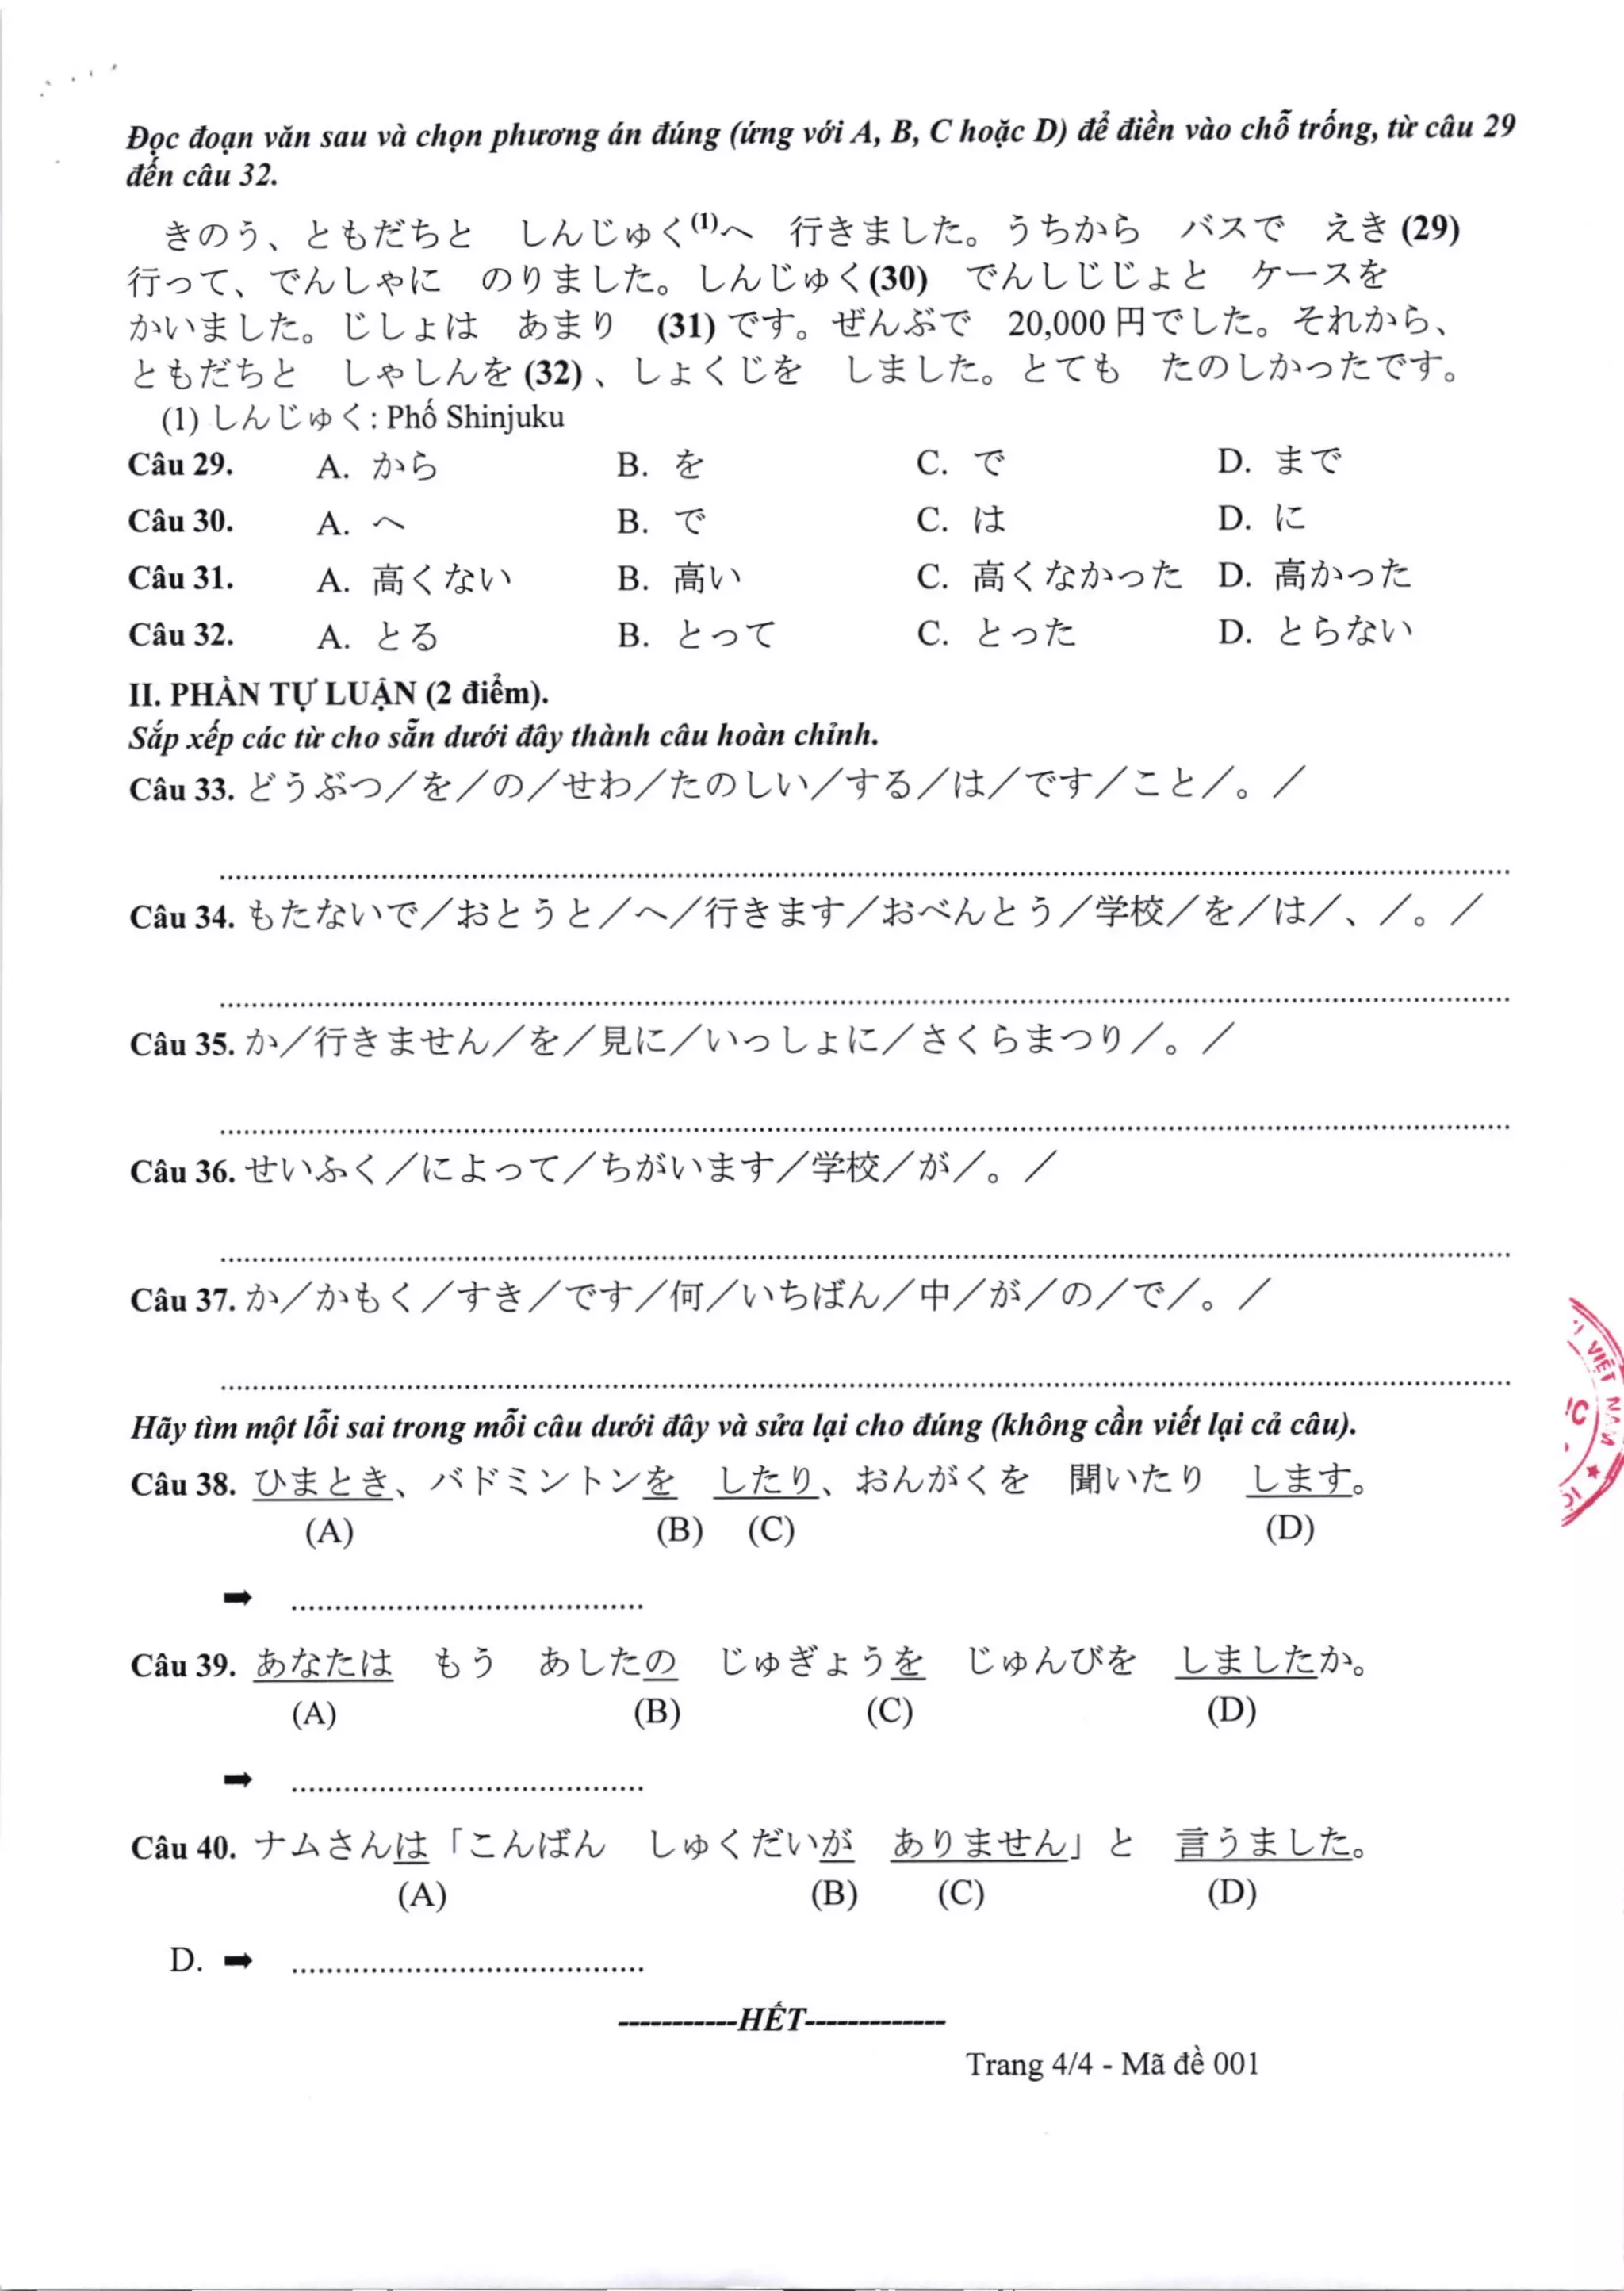 Đọc đoạn văn sau và chọn phương án đúng (ứng với A, B, C hoặc D) để điền vào chỗ trống, từ câu 29
đến câu 32.
きのう、ともだちと しんじゅく(1)へ 行きました。うちから バスで えき (29)
行って、でんしゃに のりました。しんじゅく(30) でんしじじょと ケースを
かいました。じしょは あまり (31) です。ぜんぶで 20,000 円でした。それから、
ともだちと しゃしんを (32) 、しょくじを しました。とても たのしかったです。
(1) しんじゅく: Phố Shinjuku
Câu 29. A. から B. を C. で D. まで
Câu 30. A. へ B. で C. は D. に
Câu 31. A. 高くない B. 高い C. 高くなかった D. 高かった
Câu 32. A. とる B. とって C. とった D. とらない
II. PHẦN TỰ LUẬN (2 điểm).
Sắp xếp các từ cho sẵn dưới đây thành câu hoàn chỉnh.
Câu 33. どうぶつ／を／の／せわ／たのしい／する／は／です／こと／。／
Câu 34. もたないで／おとうと／へ／行きます／おべんとう／学校／を／は／、／。／
Câu 35. か／行きません／を／見に／いっしょに／さくらまつり／。／
Câu 36. せいふく／によって／ちがいます／学校／が／。／
Câu 37. か／かもく／すき／です／何／いちばん／中／が／の／で／。／
Hãy tìm một lỗi sai trong mỗi câu dưới đây và sửa lại cho đúng (không cần viết lại cả câu).
Câu 38. ひまとき、バドミントンを したり、おんがくを 聞いたり します。
(A) (B) (C) (D)
➡ ........................................
Câu 39. あなたは もう あしたの じゅぎょうを じゅんびを しましたか。
(A) (B) (C) (D)
➡ ........................................
Câu 40. ナムさんは「こんばん しゅくだいが ありません」と 言うました。
(A) (B) (C) (D)
D. ➡ ........................................
-----------HẾT-------------
Trang 4/4 - Mã đề 001
VIỆT NAM